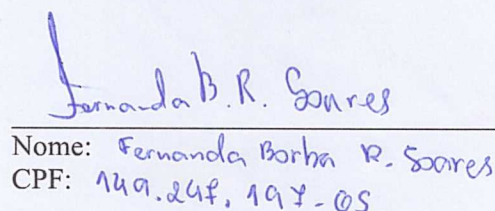 Fernanda B. R. Soares
Nome: Fernanda Borba R. Soares
CPF: 149.247.197-05